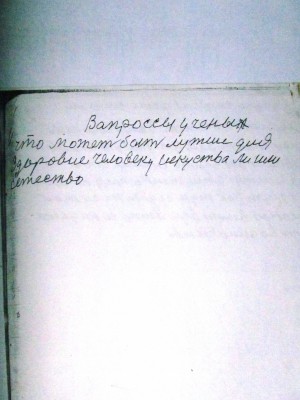 Вапроссы ученых
что может быть лутше для
здоровие человеку искуства ли или
етество